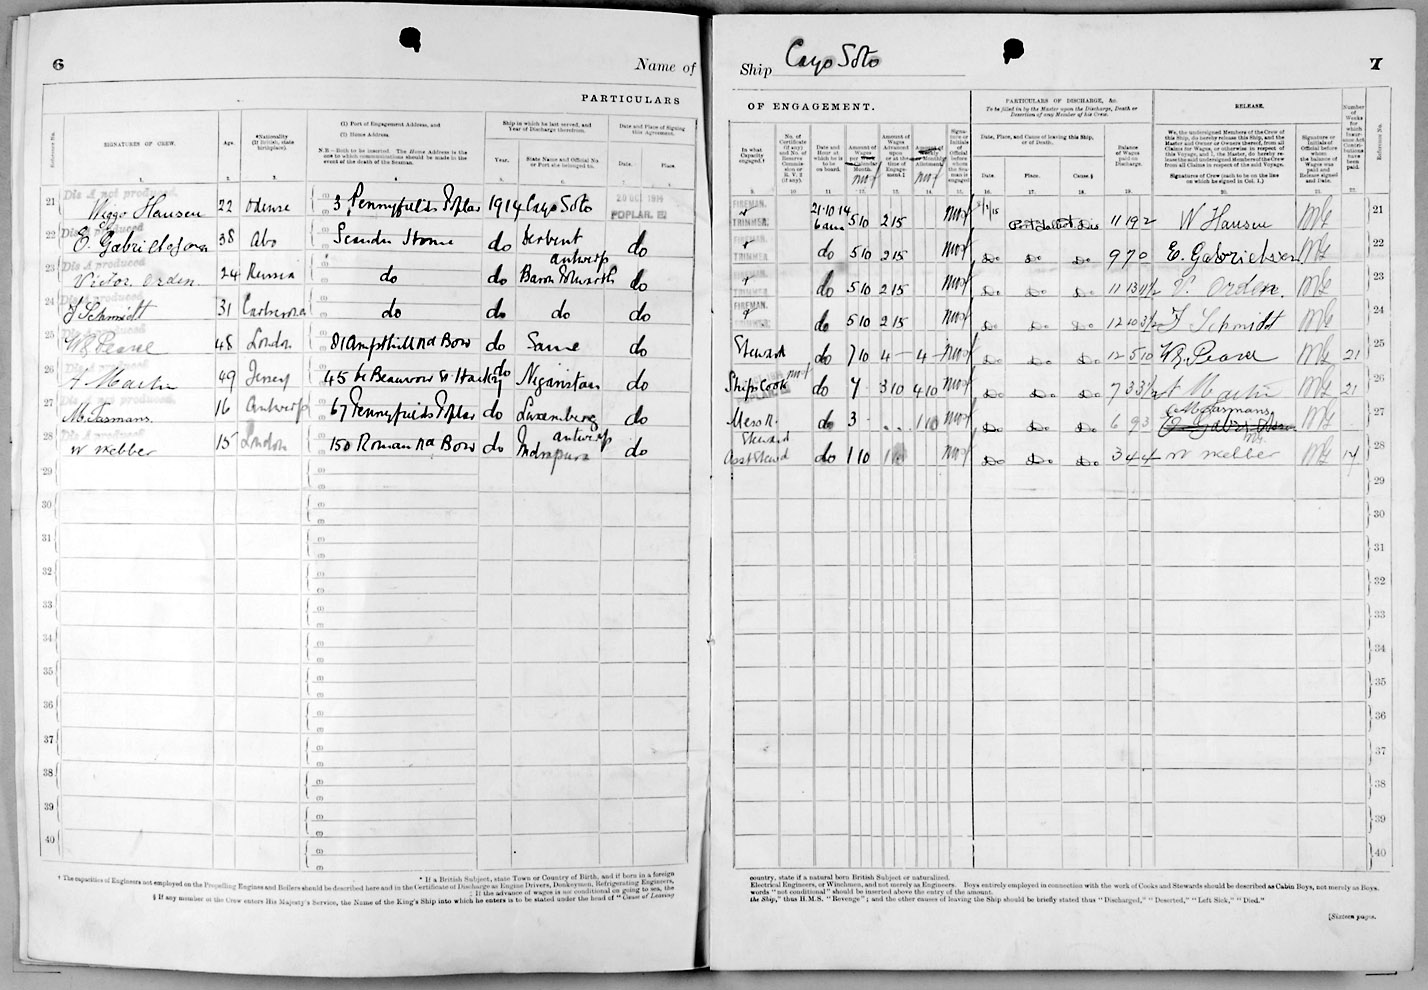 6
Name of
Ship Cayo Soto
7
PARTICULARS
OF ENGAGEMENT.
Reference No.
SIGNATURES OF CREW.
Age.
*Nationality
(If British, state
birthplace).
(1) Port of Engagement Address, and
(2) Home Address.
N.B.—Both to be inserted. The Home Address is the
one to which communications should be made in the
event of the death of the Seaman.
Ship in which he last served, and
Year of Discharge therefrom.
Year.
State Name and Official No.
or Port she belonged to.
Date and Place of Signing
this Agreement.
Date.
Place.
In what
Capacity
engaged.†
No. of
Certificate
(if any),
and No. of
Reserve
Commis-
sion or
R. V. 2
(if any).
Date and
Hour at
which he is
to be
on board.
Amount of
Wages
per
Calendar
Month.
Amount of
Wages
Advanced
upon
or at the
time of
Engage-
ment.‡
Amount of
Monthly
Allotment.
Signa-
ture or
Initials
of
Official
before
whom
the Sea-
man is
engaged
PARTICULARS OF DISCHARGE, &c.
To be filled in by the Master upon the Discharge, Death or
Desertion of any Member of his Crew.
Date, Place, and Cause of leaving this Ship,
or of Death.
Date.
Place.
Cause.§
Balance
of Wages
paid on
Discharge.
RELEASE.
We, the undersigned Members of the Crew of
this Ship, do hereby release this Ship, and the
Master and Owner or Owners thereof, from all
Claims for Wages, or otherwise in respect of
this Voyage, and I, the Master, do hereby re-
lease the said undersigned Members of the Crew
from all Claims in respect of the said Voyage.
Signatures of Crew (each to be on the line
on which he signed in Col. 1.)
Signature or
Initials of
Official before
whom
the balance
of Wages
was paid
and Release
signed and
Date.
Number
of
Weeks
for
which
Insur-
ance Act
Contri-
butions
have
been
paid.
Reference No.
21 Dis A not produced Viggo Hansen 22 Odense 3 Pennyfields Poplar 1914 Cayo Soto 20 OCT 1914 POPLAR. E FIREMAN. TRIMMER. 21.10.14 6 am 5 10 2 15 3/1/15 Dis 11 19 2 W Hansen 21
22 E. Gabrielsson 38 Abo Scandn Home do Serbent antwerp do FIREMAN. TRIMMER. do 5 10 2 15 Do Do Do 9 7 0 E. Gabrielsson 22
23 Victor Orden. 24 Russia do do do FIREMAN. TRIMMER. do 5 10 2 15 Do Do Do 11 13 11½ V. Orden. 23
24 J Schmidt 31 do do do do FIREMAN. TRIMMER. do 5 10 2 15 Do Do Do 12 10 3½ J Schmidt 24
25 W G Pearce 48 London 81 Ampthill Rd Bow do Same do Steward do 7 10 4 – 4 – Do Do Do 12 5 10 W G Pearce 21 25
26 A Martin 49 Jersey 45 de Beauvoir St Hackney do Niganstan do Ships Cook do 7 3 10 4 10 Do Do Do 7 3 3½ A Martin 21 26
27 M. Tasmans. 16 Antwerp 67 Pennyfields Poplar do Luxemberg antwerp do Mess R. Steward do 3 1 10 Do Do Do 6 9 3 M Tasmans 27
28 W Webber 15 London 150 Roman Rd Bow do Indrapura do Asst Stewd do 1 10 Do Do Do 3 4 4 W Webber 28
29 29
30 30
31 31
32 32
33 33
34 34
35 35
36 36
37 37
38 38
39 39
40 40
* If a British Subject, state Town or Country of Birth, and if born in a foreign
country, state if a natural born British Subject or naturalized.
† The capacities of Engineers not employed on the Propelling Engines and Boilers should be described here and in the Certificate of Discharge as Engine Drivers, Donkeymen, Refrigerating Engineers,
Electrical Engineers, or Winchmen, and not merely as Engineers. Boys entirely employed in connection with the work of Cooks and Stewards should be described as Cabin Boys, not merely as Boys.
‡ If the advance of wages is not conditional on going to sea, the
words "not conditional" should be inserted above the entry of the amount.
§ If any member of the Crew enters His Majesty's Service, the Name of the King's Ship into which he enters is to be stated under the head of "Cause of Leaving
the Ship," thus H.M.S. "Revenge"; and the other causes of leaving the Ship should be briefly stated thus "Discharged," "Deserted," "Left Sick," "Died."
[Sixteen pages.